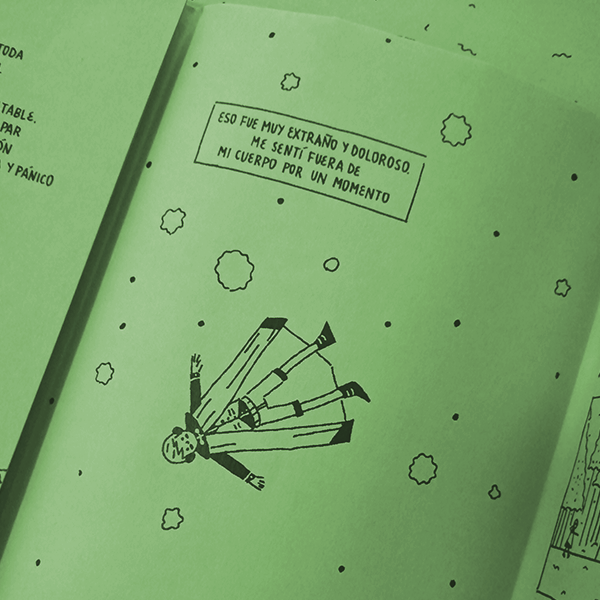 TODA
TABLE.
PAR
ÓN
Y PÁNICO
ESO FUE MUY EXTRAÑO Y DOLOROSO.
ME SENTÍ FUERA DE
MI CUERPO POR UN MOMENTO